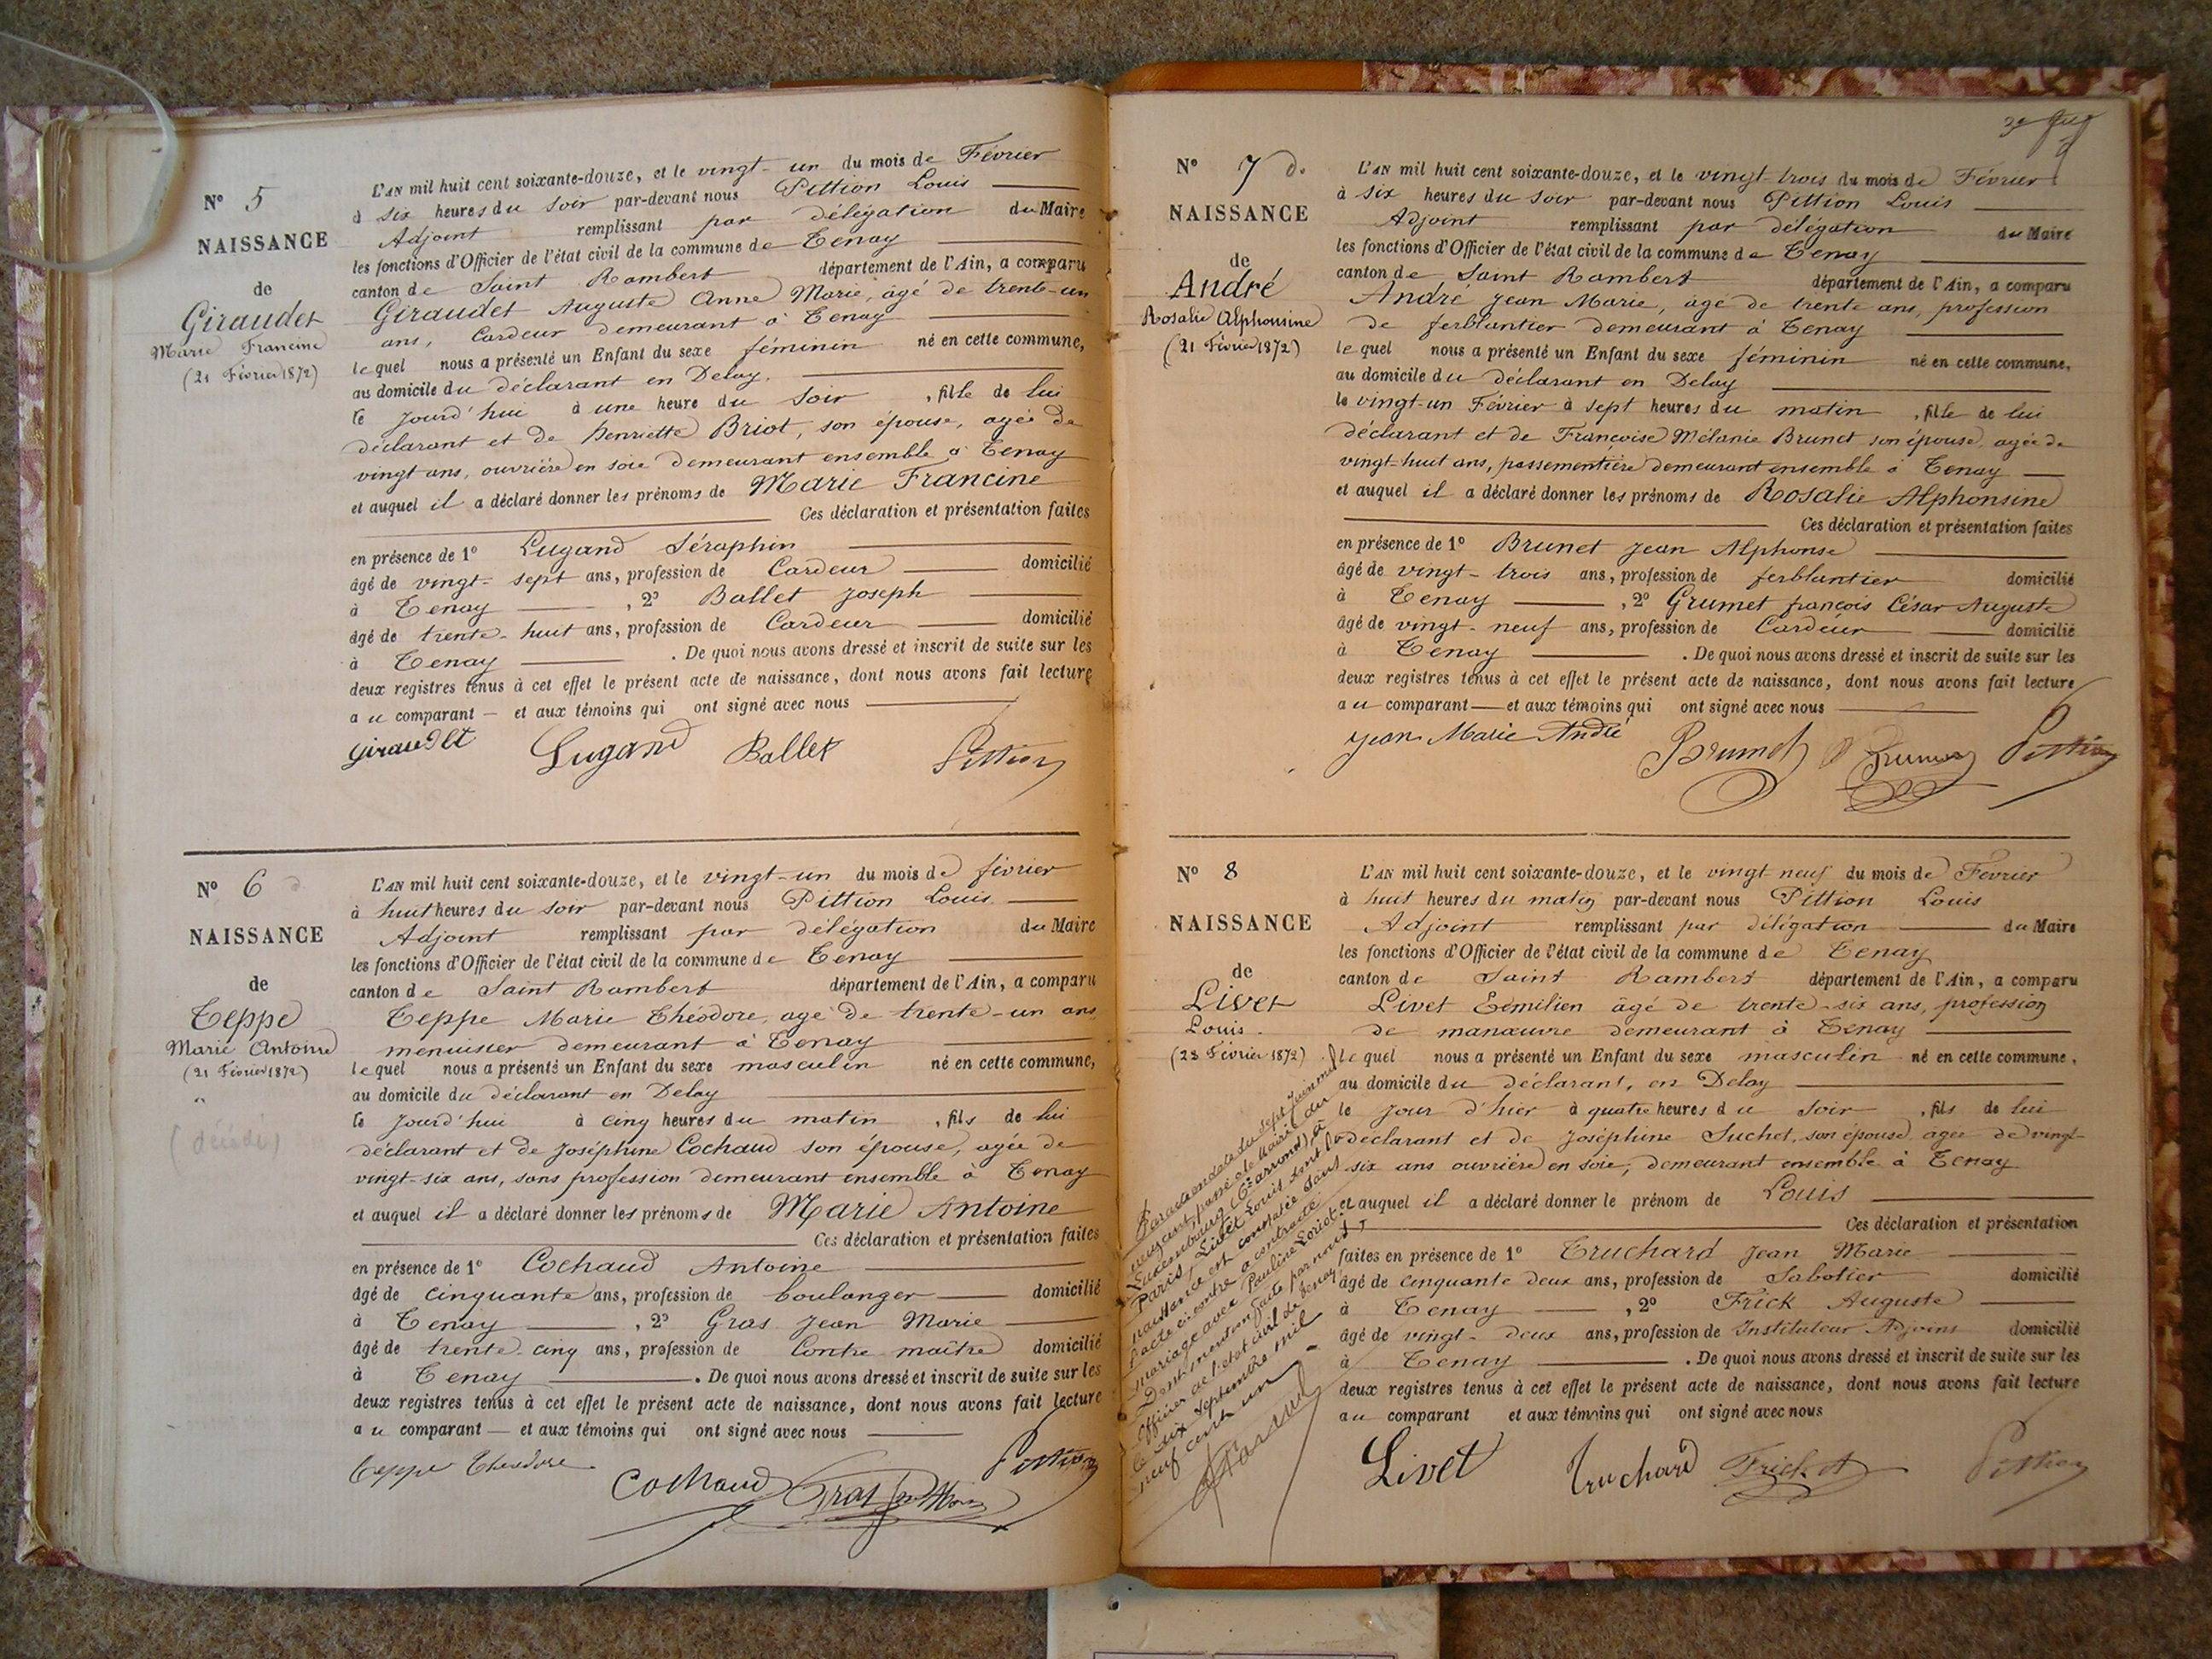 N° 5
NAISSANCE
de
Giraudet
Marie Francine
(21 Février 1872)
L'AN mil huit cent soixante-douze, et le vingt-un du mois de Février
à six heures du soir par-devant nous Pittion Louis
Adjoint remplissant par délégation du Maire
les fonctions d'Officier de l'état civil de la commune de Tenay
canton de Saint Rambert département de l'Ain, a comparu
Giraudet Auguste Anne Marie, âgé de trente-un
ans, Cardeur demeurant à Tenay
lequel nous a présenté un Enfant du sexe féminin né en cette commune,
au domicile du déclarant en Delay.
le jourd'hui à une heure du soir, fille de lui
déclarant et de henriette Briot, son épouse, agée de
vingt ans, ouvrière en soie demeurant ensemble à Tenay
et auquel il a déclaré donner les prénoms de Marie Francine
Ces déclaration et présentation faites
en présence de 1° Lugand Séraphin
âgé de vingt-sept ans, profession de Cardeur domicilié
à Tenay, 2° Ballet Joseph
âgé de trente-huit ans, profession de Cardeur domicilié
à Tenay. De quoi nous avons dressé et inscrit de suite sur les
deux registres tenus à cet effet le présent acte de naissance, dont nous avons fait lecture
au comparant — et aux témoins qui ont signé avec nous
Giraudet Lugand Ballet Pittion
N° 6
NAISSANCE
de
Teppe
Marie Antoine
(21 Février 1872)
(décédé)
L'AN mil huit cent soixante-douze, et le vingt-un du mois de février
à huit heures du soir par-devant nous Pittion Louis
Adjoint remplissant par délégation du Maire
les fonctions d'Officier de l'état civil de la commune de Tenay
canton de Saint Rambert département de l'Ain, a comparu
Teppe Marie Théodore, agé de trente-un ans
menuisier demeurant à Tenay
lequel nous a présenté un Enfant du sexe masculin né en cette commune,
au domicile du déclarant en Delay
le jourd'hui à cinq heures du matin, fils de lui
déclarant et de Joséphine Cochaud son épouse, agée de
vingt-six ans, sans profession demeurant ensemble à Tenay
et auquel il a déclaré donner les prénoms de Marie Antoine
Ces déclaration et présentation faites
en présence de 1° Cochaud Antoine
âgé de cinquante ans, profession de boulanger domicilié
à Tenay, 2° Gras Jean Marie
âgé de trente-cinq ans, profession de Contre-maître domicilié
à Tenay. De quoi nous avons dressé et inscrit de suite sur les
deux registres tenus à cet effet le présent acte de naissance, dont nous avons fait lecture
au comparant — et aux témoins qui ont signé avec nous
Teppe Théodore Cochaud Gras Jn Marie Pittion
N° 7
NAISSANCE
de
André
Rosalie Alphonsine
(21 Février 1872)
L'AN mil huit cent soixante-douze, et le vingt-trois du mois de Février
à six heures du soir par-devant nous Pittion Louis
Adjoint remplissant par délégation du Maire
les fonctions d'Officier de l'état civil de la commune de Tenay
canton de Saint Rambert département de l'Ain, a comparu
André Jean Marie, agé de trente ans, profession
de ferblantier demeurant à Tenay
lequel nous a présenté un Enfant du sexe féminin né en cette commune,
au domicile du déclarant en Delay
le vingt-un Février à sept heures du matin, fille de lui
déclarant et de Francoise Mélanie Brunet son épouse agée de
vingt-huit ans, passementière demeurant ensemble à Tenay
et auquel il a déclaré donner les prénoms de Rosalie Alphonsine
Ces déclaration et présentation faites
en présence de 1° Brunet Jean Alphonse
âgé de vingt-trois ans, profession de ferblantier domicilié
à Tenay, 2° Grumet françois César Auguste
âgé de vingt-neuf ans, profession de Cardeur domicilié
à Tenay. De quoi nous avons dressé et inscrit de suite sur les
deux registres tenus à cet effet le présent acte de naissance, dont nous avons fait lecture
au comparant — et aux témoins qui ont signé avec nous
Jean Marie André Brunet Grumet Pittion
N° 8
NAISSANCE
de
Livet
Louis.
(28 Février 1872)
L'AN mil huit cent soixante-douze, et le vingt neuf du mois de Février
à huit heures du matin par-devant nous Pittion Louis
Adjoint remplissant par délégation du Maire
les fonctions d'Officier de l'état civil de la commune de Tenay
canton de Saint Rambert département de l'Ain, a comparu
Livet Eémilien âgé de trente-six ans, profession
de manœuvre demeurant à Tenay
lequel nous a présenté un Enfant du sexe masculin né en cette commune,
au domicile du déclarant, en Delay
le jour d'hier à quatre heures du soir, fils de lui
déclarant et de Joséphine Suchet, son épouse agée de vingt-
six ans ouvrière en soie, demeurant ensemble à Tenay
et auquel il a déclaré donner le prénom de Louis
Ces déclaration et présentation
faites en présence de 1° Truchard Jean Marie
âgé de cinquante deux ans, profession de Sabotier domicilié
à Tenay, 2° Frick Auguste
âgé de vingt-deux ans, profession de Instituteur Adjoint domicilié
à Tenay. De quoi nous avons dressé et inscrit de suite sur les
deux registres tenus à cet effet le présent acte de naissance, dont nous avons fait lecture
au comparant et aux témoins qui ont signé avec nous
Livet Truchard Frick A Pittion
Par acte en date du sept Juin mil
neuf cent, passé à la Mairie du
Luxembourg (6e arrondt), à
Paris, Livet Louis dont la
naissance est constatée dans
l'acte ci-contre a contracté
mariage avec Pauline Loriot.
Dont mention faite par nous
Officier de l'état civil de Tenay
le dix Septembre mil
neuf cent un